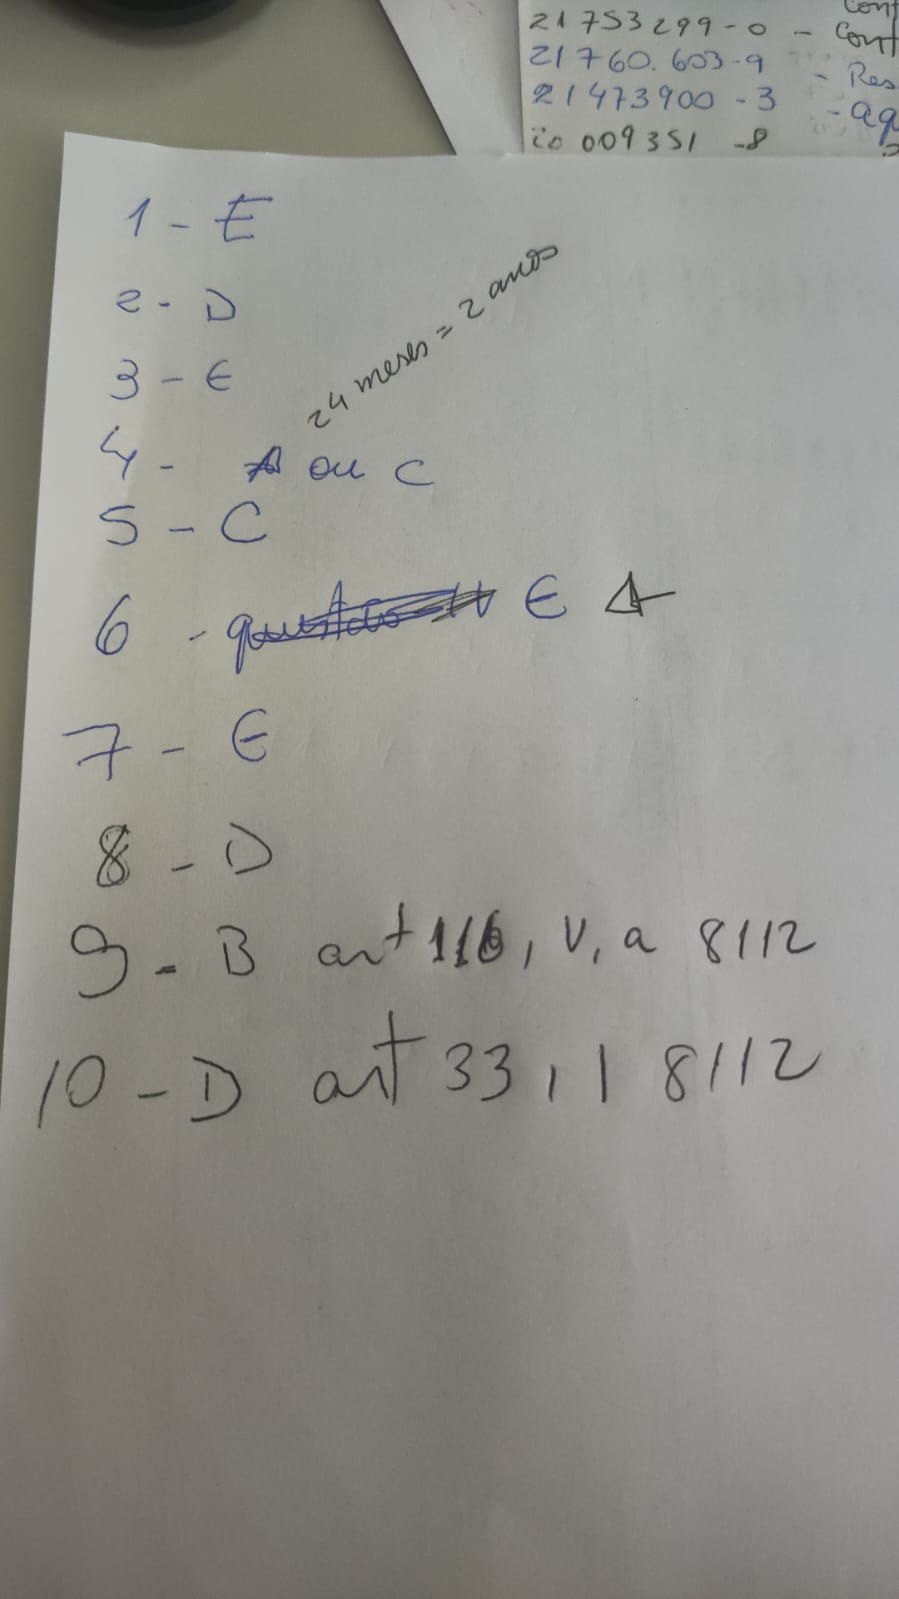 Conf
21 753299-0 - Conf
21760.603-9 - Res
21473900-3 - aq
009351-8
1 - E
2 - D
3 - E
24 meses = 2 anos
4 - A ou C
5 - C
6 - E
7 - E
8 - D
9 - B art 116, V, a 8112
10 - D art 33, I 8112